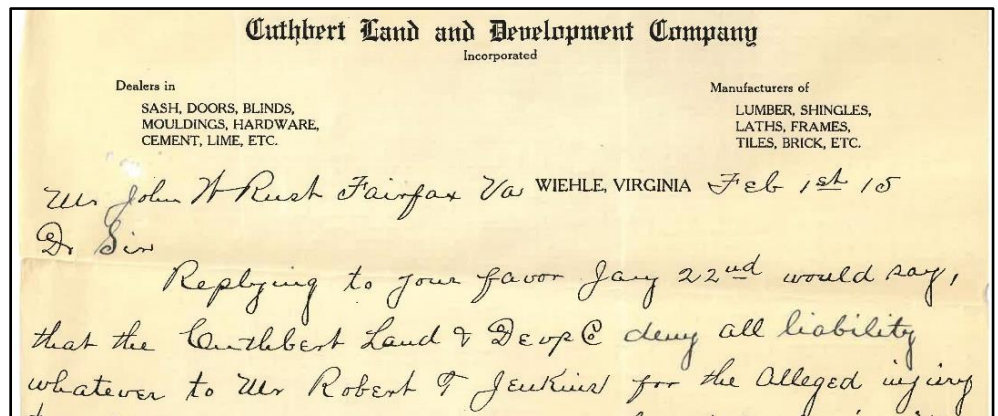 Cuthbert Land and Development Company
Incorporated
Dealers in
SASH, DOORS, BLINDS,
MOULDINGS, HARDWARE,
CEMENT, LIME, ETC.
Manufacturers of
LUMBER, SHINGLES,
LATHS, FRAMES,
TILES, BRICK, ETC.
Mr John W Rust Fairfax Va WIEHLE, VIRGINIA Feb 1st 15
Dr Sir
Replying to your favor Jany 22nd would say,
that the Cuthbert Land & Devp C deny all liability
whatever to Mr Robert T Jenkins for the alleged injury